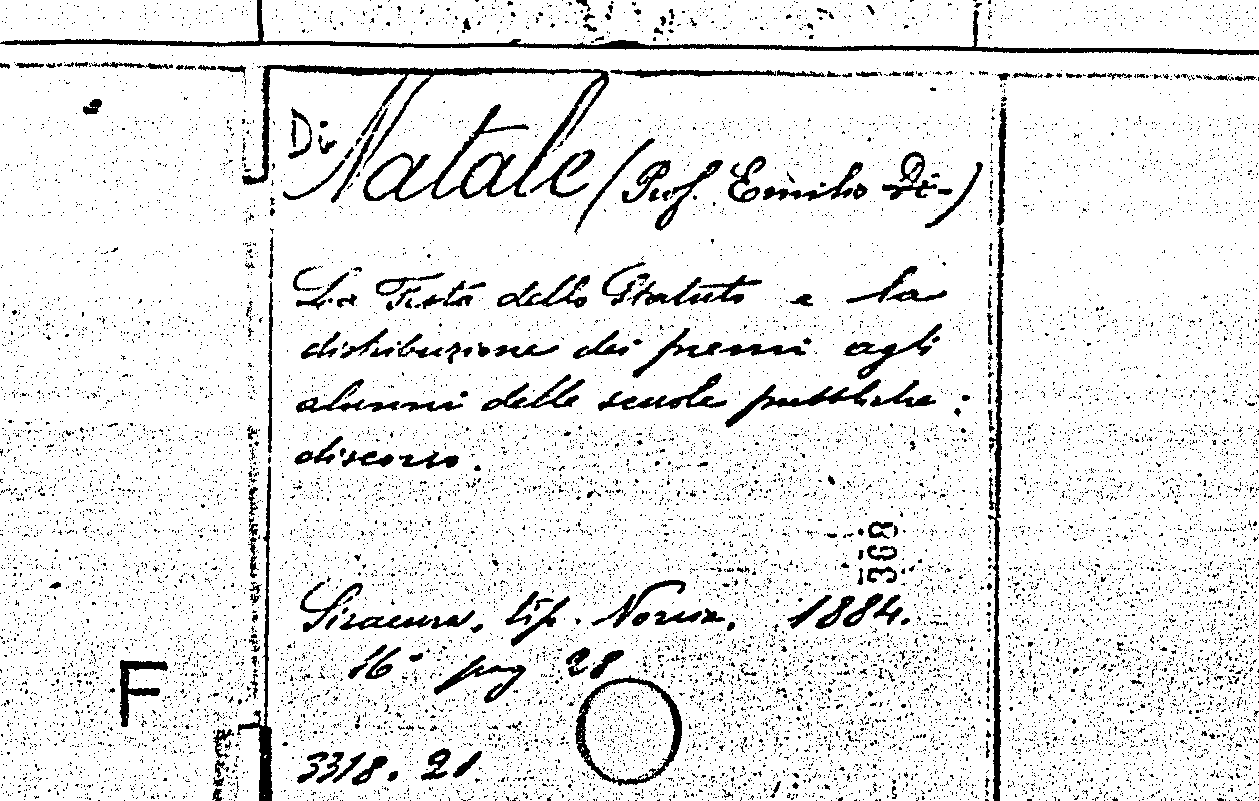 Di Natale (Prof. Emilio Di)
La Festa dello Statuto e la
distribuzione dei premi agli
alunni delle scuole pubbliche:
discorso.
368
Siracusa, tip. Norcia, 1884.
16° pag 28
F
3318. 21